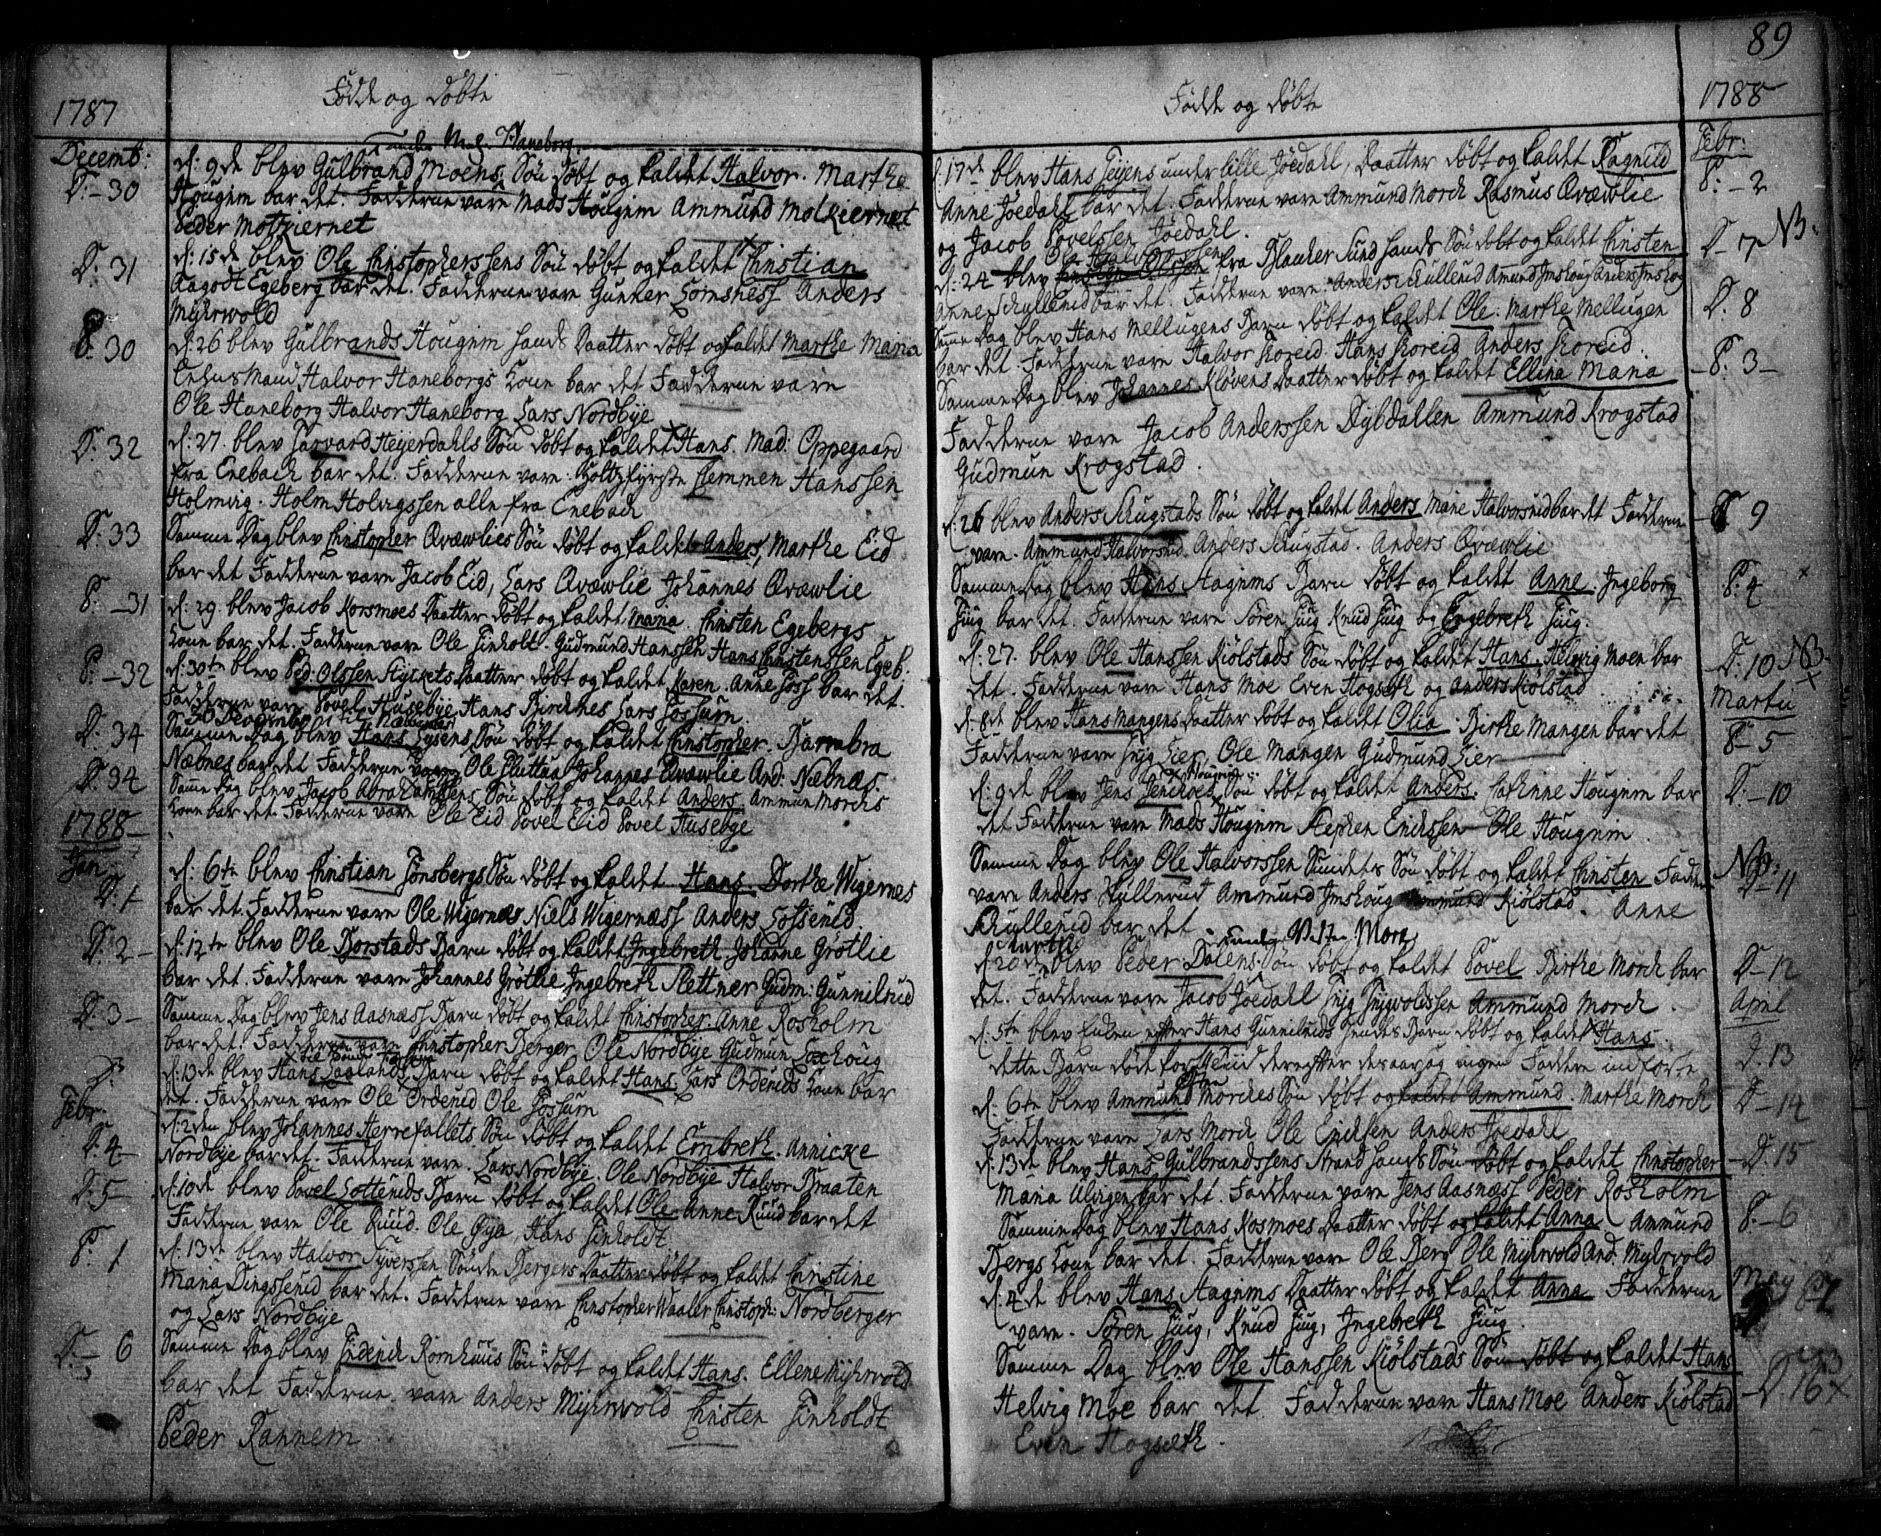 89
1787
Födde og döbte
under Mad. Haneborg.
Decemb:
d: 9de blev Gulbrand Moens Sön döbt og kaldet Halvor. Marthe
D: – 30
Hougim bar det. Fadderne vare Mads Hougim Ammund Motkiernet
Peder Motkiernet
D: 31
d: 15de blev Ole Christopherssens Sön döbt og kaldet Christian
Aagodt Egeberg bar det. Fadderne vare Gunner Anders
Myhrwold
P: 30
d: 26 blev Gulbrands Hougim hands Daatter döbt og kaldet Marthe Maria
Halvor Haneborgs Kone bar det Fadderne vare
Ole Haneborg Halvor Haneborg Lars Nordbye
D: 32
d: 27. blev Heyerdahls Sön döbt og kaldet Hans. Mad: Oppegaard
fra Enebach bar det. Fadderne vare: Clemmen Hanssen
Holmvig. Holm Holvigssen alle fra Enebach
D: 33
Samme Dag blev Christopher Qvæwlies Sön döbt og kaldet Anders, Marthe Eid
bar det Fadderne vare Jacob Eid, Lars Qvæwlie Johannes Qvæwlie
P: – 31
d: 29. blev Jacob Korsmoes Daatter döbt og kaldet Maria. Christen Egebergs
Kone bar det. Fadderne vare Ole Finholt. Gudmund Hanssen Hans Christenssen Egeb.
P: – 32
d: 30te blev Ped: Olssen Daatter döbt og kaldet Karen. Anne Foss bar det.
Fadderne vare Povel Husebye Hans Lars Fossum.
D: 34
Samme Dag blev Hans Lysens Sön döbt og kaldet Christopher. Barabra
Næbnes bar det Fadderne vare Ole Pluttaa Johannes Qvæwlie And. Næbnæs.
D: 34
Same Dag blev Jacob Abrahamsens Sön döbt og kaldet Anders. Ammun Morchs
Kone bar det. Fadderne vare Ole Eid Povel Eid Povel Husebye
1788
Jan:
d: 6te blev Christian Tönsbergs Sön döbt og kaldet Hans Dorthe Wigernes
D: 1
bar det. Fadderne vare Ole Wigernæs Niels Wigernæss Anders
D: 2
d: 12te blev Ole Borstads Barn döbt og kaldet Ingebreth Johanne Grötlie
bar det. Fadderne vare Johannes Grötlie Ingebreth Slettner Gudm. Gunnilrud
D: 3
Samme Dag blev Jens Aasnæss Barn döbt og kaldet Christopher. Anne Rosholm
bar det. Fadderne vare Christopher Berger, Ole Nordbye Gudmun
d: 13de blev Hans Barn döbt og kaldet Hans. Lars Orderuds Kone bar
det. Fadderne vare Ole Orderud Ole Fossum
Febr.
D: 4
d: 2den blev Johannes Herrefallets Sön döbt og kaldet Embreth. Annicke
Nordbye bar det. Fadderne vare. Lars Nordbye. Ole Nordbye Halvor Braaten
D: 5
d: 10de blev Povel Barn döbt og kaldet Ole. Anne Ruud bar det
Fadderne vare Ole Ruud. Ole Hans Finholdt
P: 1
d: 13de blev Halvor Syverssen Söndre Bergers Daatter döbt og kaldet Christine
Maria Dingserud bar det. Fadderne vare Christopher Waaler Christoph: Nordberger
og Lars Nordbye
D: – 6
Samme Dag blev Friderich Romhuus Sön döbt og kaldet Hans. Ellene Myhrvold
bar det Fadderne. vare Anders Myhrwold Christen Finholdt
Peder Rannem
1788
Födde og döbte
Febr:
d: 17de blev Hans under lille Jöedahl, Daatter döbt og kaldet Ragnild
P: – 2
Anne Jöedahl bar det. Fadderne vare Ammund Morch Rasmus Qvæwlie
og Jacob Povelssen Jöedahl.
Ole Halvorssen
D – 7 NB.
d: 24 blev fra Sund hands Sön döbt og kaldet Christen
Anne Skullerud bar det. Fadderne vare Anders Skullerud Amund Imshoug Anders Imshoug
D. 8
Same Dag blev Hans Mellugens Barn döbt og kaldet Ole. Marthe Mellugen
bar det. Fadderne vare Halvor Koreid. Hans Koreid Anders Koreid.
– P: 3 –
Samme Dag blev Johannes Klövens Daatter döbt og kaldet Ellina Maria
Fadderne vare Jacob Anderssen Dybdallen Ammund Krogstad
Gudmun Krogstad.
9
d: 26 blev Anders Skugstads Sön döbt og kaldet Anders Marie Halvorsrud bar det Fadderne
vare. Ammund Halvorsrud. Anders Skugstad. Anders Qvæwlie
P: 4 ×
Samme Dag blev Hans Aagnms Barn döbt og kaldet Anne. Ingeborg
Juig bar det. Fadderne vare Sören Juig Knud Juig og Engebreth Juig.
D. 10 NB. ×
d: 27. blev Ole Hanssen Kiölstads Sön döbt og kaldet Hans. Helvig Moen bar
det. Fadderne vare Hans Moe Even Hogseth og Anders Kiölstad
Martii
P – 5
d: 8de blev Hans Mangens Daatter döbt og kaldet Olia. Birthe Mangen bar det
Fadderne vare Ole Mangen Gudmund
Hougim
D: – 10
d: 9de blev Jens Sön döbt og kaldet Anders. Cathrine Hougim bar
det Fadderne vare Mads Hougim Stephen Erichssen Ole Hougnim.
NB:
D – 11
Samme Dag blev Ole Halvorssen Sundets Sön döbt og kaldet Christen Fadder
vare Anders Skullerud Ammund Imshoug Ammund Kiölstad. Anne
Skullerud bar det.
under Vesten Morch
D – 12
d: 20de blev Peder Dalens Sön döbt og kaldet Povel Birthe Morch bar
det. Fadderne vare Jacob Jöedahl Ammund Morch.
April
D. 13
d: 5te blev Enken efter Hans Gunneruds hendes Barn döbt og kaldet Hans
dette Barn döde kort tiid derefter desaarsag ingen Faddere indförte
D – 14
d: 6te blev Ammund Morches Sön döbt og kaldet Ammund. Marthe Morch
Fadderne vare Lars Morch Ole Erichsen Anders Jöedahl
– D. 15
d: 13de blev Hans Gulbrandssens Strand hands Sön döbt og kaldet Christopher
Maria Ulvigen bar det. Fadderne vare Jens Aasnæss Peder Rosholm
P. – 6
Samme Dag blev Hans Kosmoes Daatter döbt og kaldet Anna Ammund
Bergs Kone bar det. Fadderne vare Ole Berg Ole Myhrvold And. Myhrvold
May
d: 4de blev Hans Aagnms Daatter döbt og kaldet Anna Fadderne
vare. Sören Juig, Knud Juig, Ingebreth Juig.
NB
– D. 16 ×
Samme Dag blev Ole Hanssen Kiölstads Sön döbt og kaldet Hans
Helvig Moe bar det. Fadderne vare Hans Moe Anders Kiölstad
Even Hogseth.